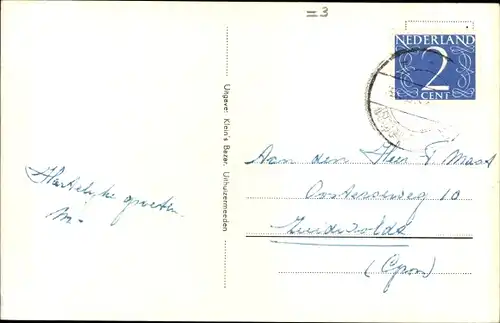 =3
NEDERLAND
2
CENT
Uitgave: Klein's Bazar, Uithuizermeeden
Hartelijke groeten.
M.-
Aan den Heer F Maat
Oosterseweg 10
Zuidwolde
(Gron)